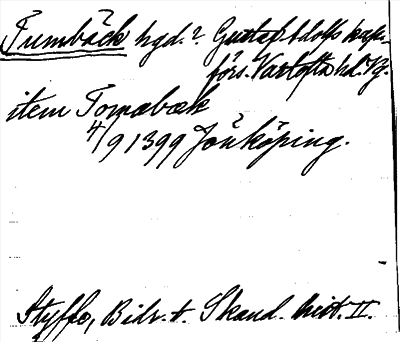 Tumbäck hgd.? Gustaf Adolfs kap.
förs. Vartofta hd. Vg.
item Tornabæk
4/9 1399 Jönköping.
Styffe, Bidr. t. Skand. hist. II.